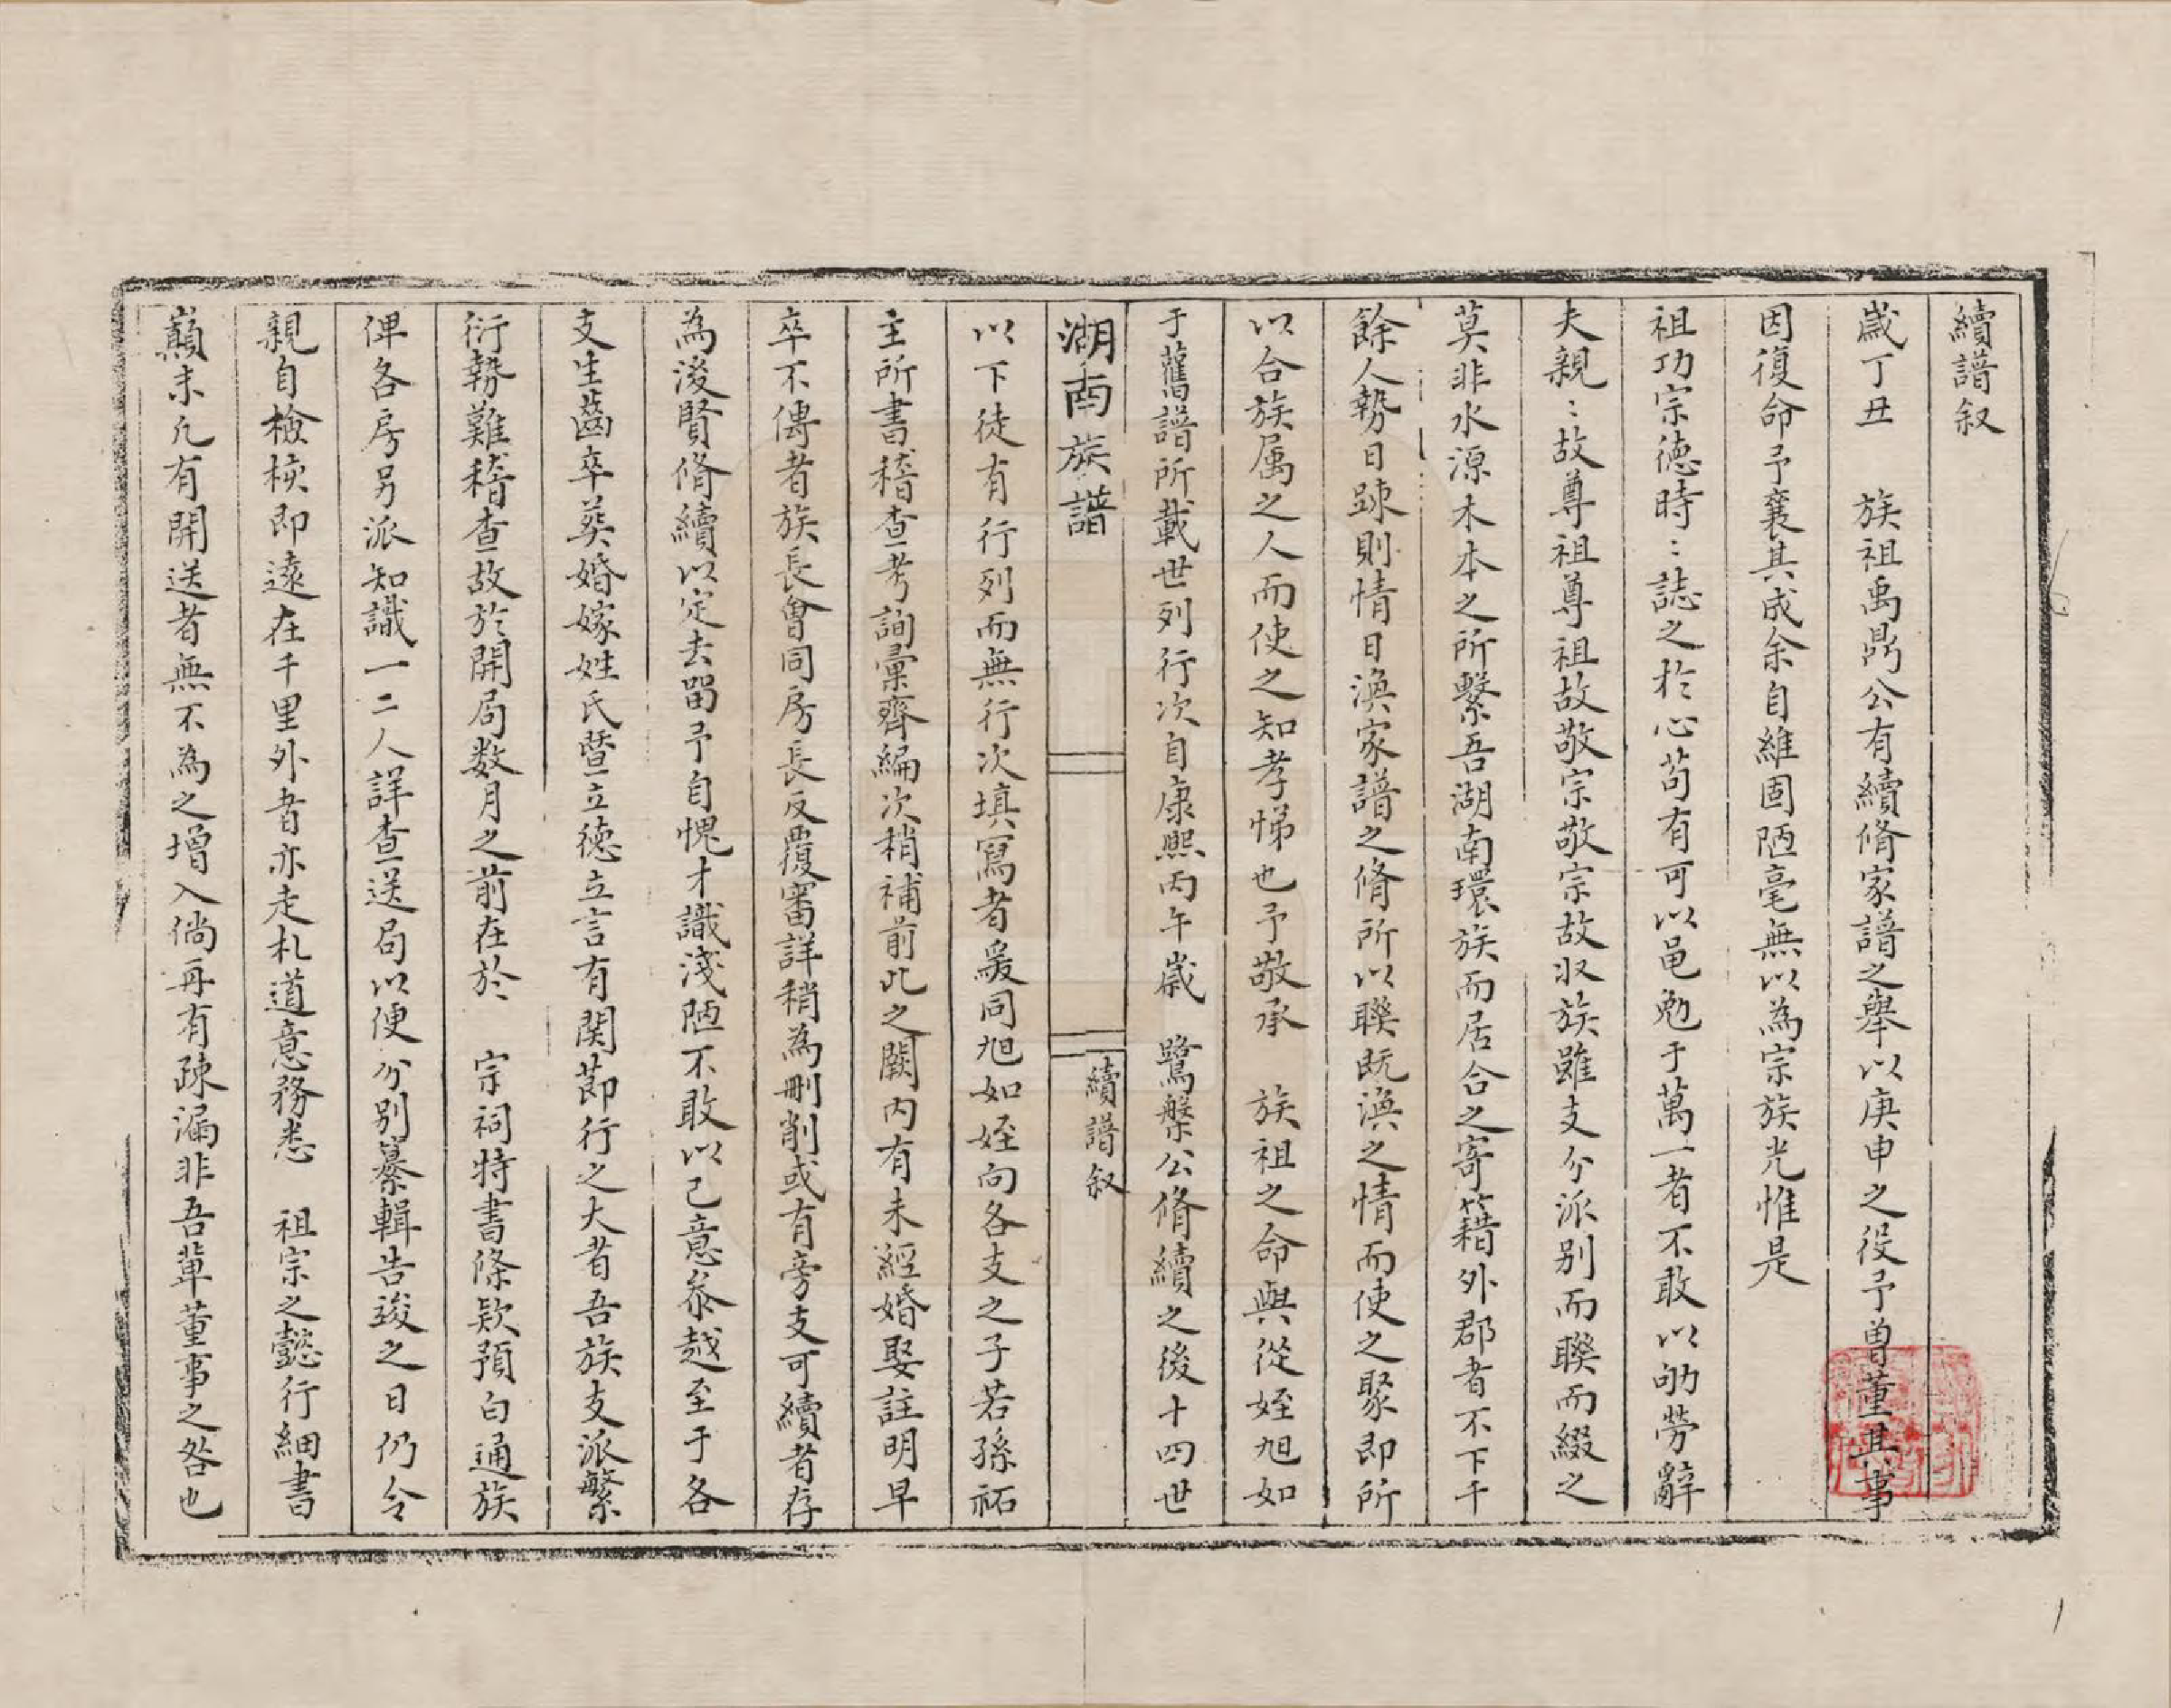 續譜叙
歲丁丑　族祖禹鼎公有續脩家譜之舉以庚申之役予曽董其事
因復命予襄其成余自維固陋毫無以為宗族光惟是
祖功宗徳時〻誌之於心苟有可以黽勉于萬一者不敢以劬勞辭
夫親〻故尊祖尊祖故敬宗敬宗故収族雖支分派别而聯而綴之
莫非水源木本之所繫吾湖南環族而居合之寄籍外郡者不下千
餘人勢日踈則情日渙家譜之脩所以聯既渙之情而使之聚即所
以合族属之人而使之知孝悌也予敬承　族祖之命與從姪旭如
于舊譜所載世列行次自康熙丙午歲　鷺槃公脩續之後十四世
湖南族譜　續譜叙
以下徒有行列而無行次填寫者爰同旭如姪向各支之子若孫祏
主所書稽查考詢彙齊編次稍補前此之闕内有未經婚娶註明早
卒不傳者族長會同房長反覆審詳稍為刪削或有旁支可續者存
為後賢脩續以定去畱予自愧才識淺陋不敢以己意叅越至于各
支生齒卒葬婚嫁姓氏暨立徳立言有関節行之大者吾族支派繁
衍勢難稽查故於開局数月之前在於　宗祠特書條欵預白通族
俾各房另派知識一二人詳查送局以便分别纂輯告竣之日仍令
親自檢核即遠在千里外者亦走札道意務悉　祖宗之懿行細書
巔末凢有開送者無不為之増入倘再有踈漏非吾軰董事之咎也